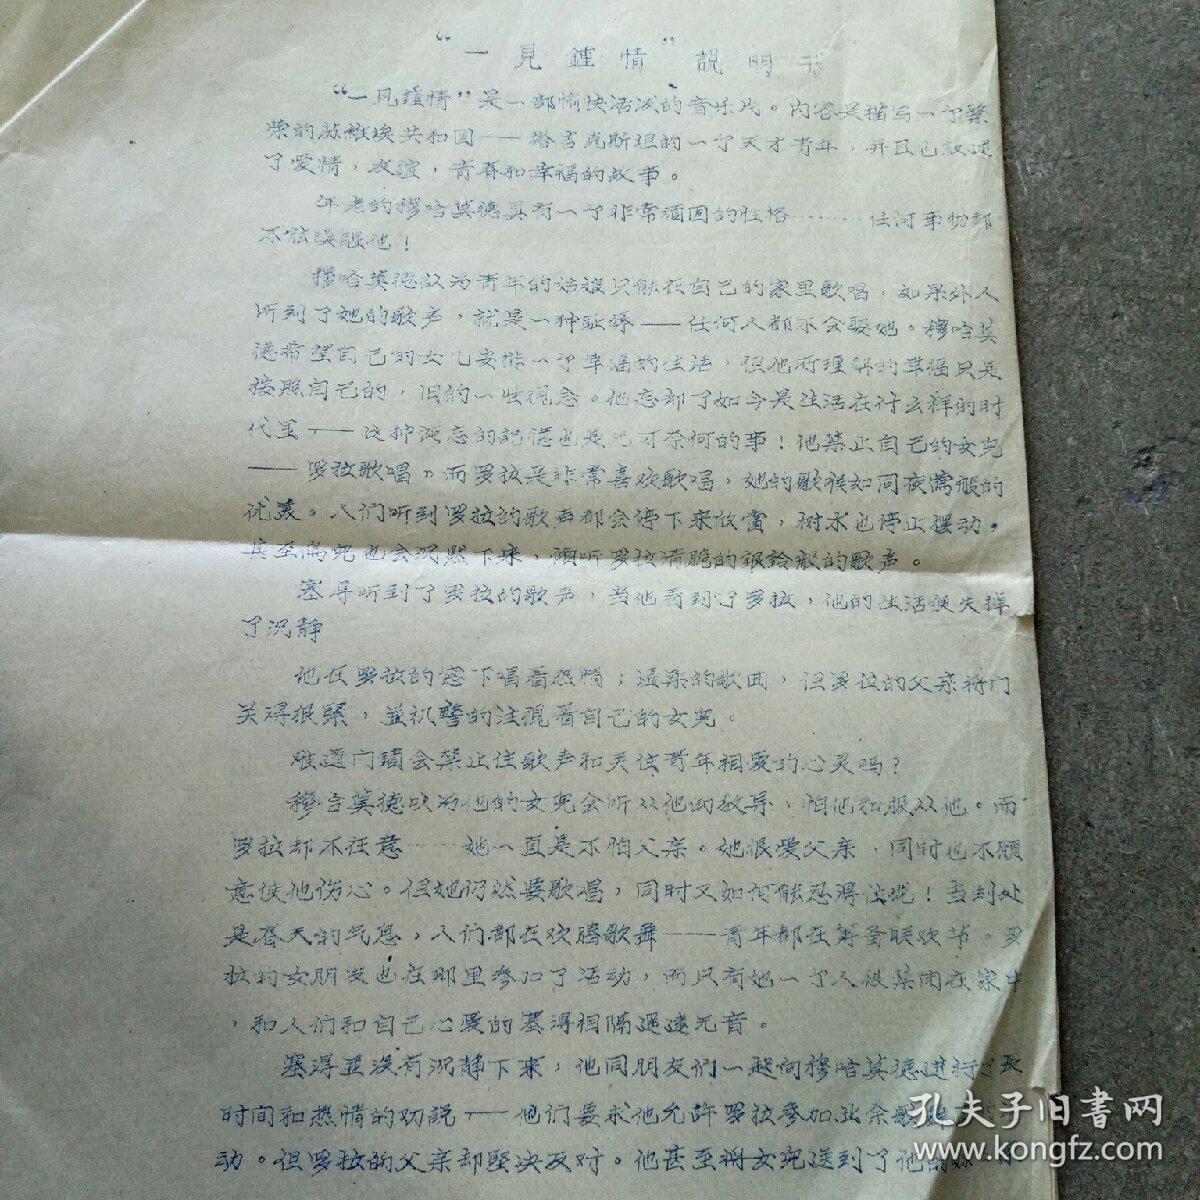 “一見鍾情”説明书
“一见鍾情”是一部愉快活泼的音乐片。内容是描写一个繁
荣的苏維埃共和国——塔吉克斯坦的一个天才青年，并且已叙述
了爱情，友谊，青春和幸福的故事。
年老的穆哈莫德具有一个非常顽固的性格………任何事物都
不能唤醒他！
穆哈莫德認为青年的姑娘只能在自己的家里歌唱，如果外人
听到了她的歌声，就是一种耻辱——任何人都不会娶她。穆哈莫
德希望自己的女儿安排一个幸福的生活，但他所理解的幸福只是
按照自己的，旧的一些观念。他忘却了如今是生活在什么样的时
代里——这种遗忘的記憶也是无可奈何的事！他禁止自己的女兒
——罗拉歌唱，而罗拉是非常喜欢歌唱，她的歌喉如同夜鶯般的
优美。人们听到罗拉的歌声都会停下来欣賞，树木也停止摆动。
甚至鳥兒也会沉默下来，傾听罗拉清脆的银鈴般的歌声。
塞得听到了罗拉的歌声，当他看到了罗拉，他的生活便失掉
了沉静
他在罗拉的窓下唱着热情；温柔的歌曲，但罗拉的父亲将门
关得很緊，並机警的注視着自己的女兒。
难道门锁会禁止住歌声和关住青年相爱的心灵吗？
穆哈莫德以为他的女兒会听从他的教导、怕他和服从他。而
罗拉却不在意……她一直是不怕父亲。她很爱父亲，同时也不願
意使他伤心。但她仍然要歌唱，同时又如何能忍得住呢！当到处
是春天的气息，人们都在欢騰歌舞——青年都在筹备联欢节。罗
拉的女朋友也在那里参加了活动，而只有她一个人被禁闭在家中
，和人们和自己心爱的塞得相隔遥遠无音。
塞得並没有沉静下来，他同朋友們一起向穆哈莫德进行了長
时间和热情的劝説——他们要求他允許罗拉参加业余歌
动。但罗拉的父亲却堅决反对。他甚至将女兒送到了他的
孔夫子旧書网
www.kongfz.com